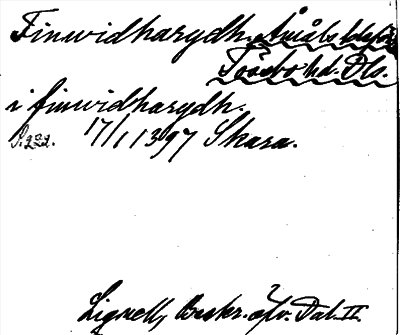 Finwidharydh. Åmåls
Tössbo hd. Ds.
i finwidharydh.
S. 222. 17/1 1397 Skara.
Lignell, Beskr. öfv. Dal. II.